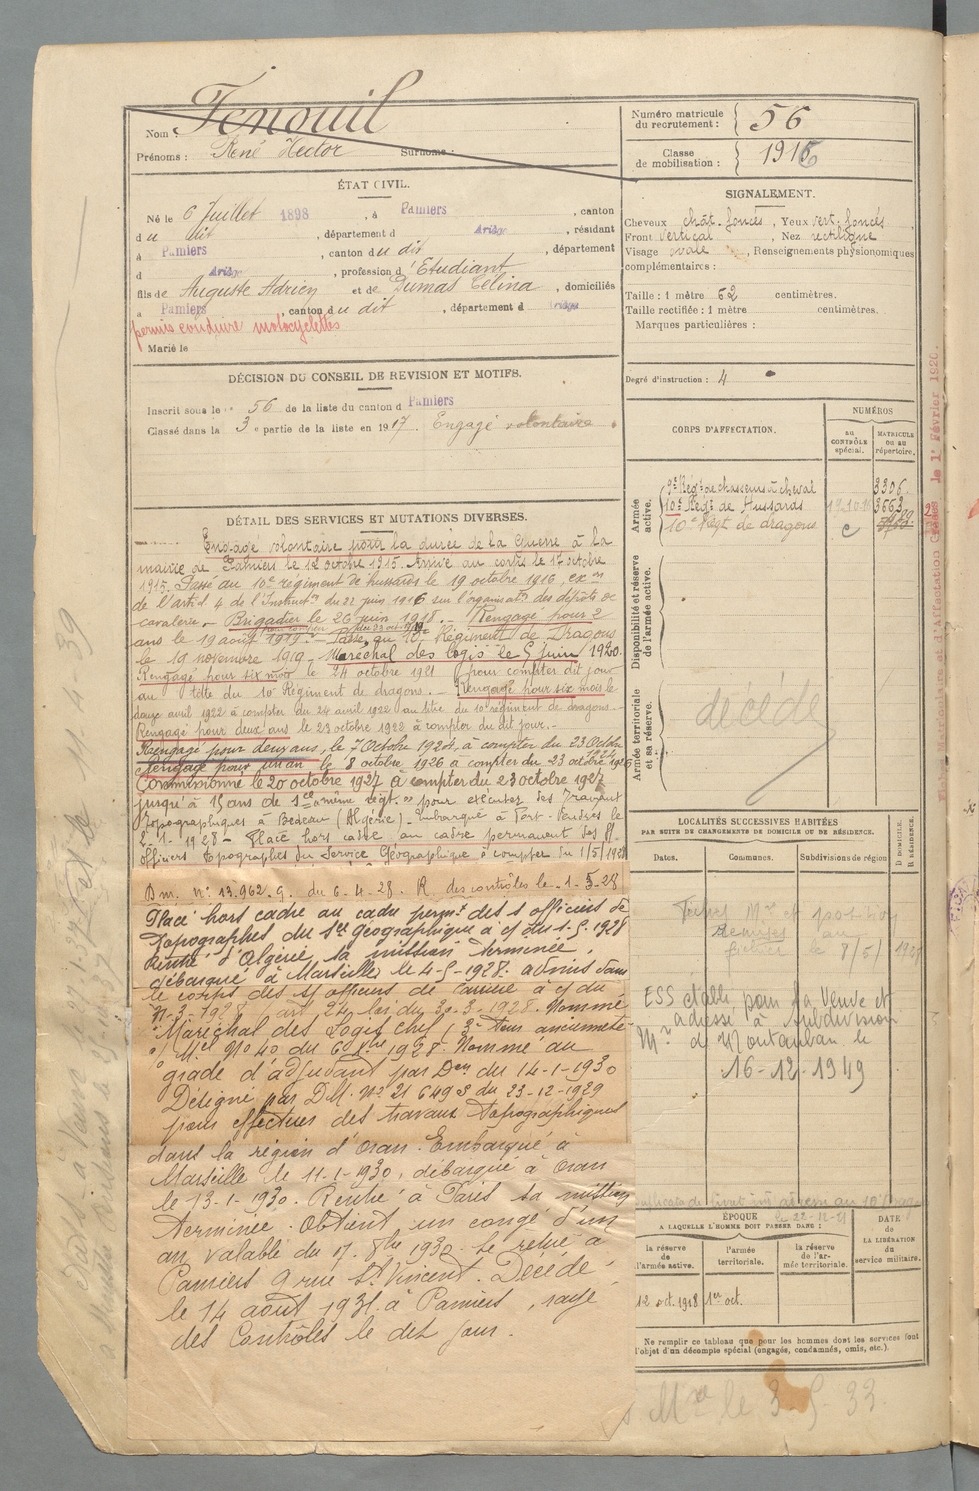 Nom : Fenouil
Prénoms : René Hector Surnoms :
Numéro matricule du recrutement : 56
Classe de mobilisation : 1916
ÉTAT CIVIL.
Né le 6 Juillet 1898, à Pamiers, canton
du dit, département d Ariège, résidant
à Pamiers, canton du dit, département
d Ariège, profession d'Etudiant
fils de Auguste Adrien et de Dumas Célina, domiciliés
à Pamiers canton du dit, département d Ariège
permis conduire motocyclettes
Marié le
SIGNALEMENT.
Cheveux chât. foncés, Yeux vert-foncés,
Front vertical, Nez rectiligne
Visage ovale, Renseignements physionomiques
complémentaires :
Taille : 1 mètre 62 centimètres.
Taille rectifiée : 1 mètre centimètres.
Marques particulières :
Degré d'instruction : 4
DÉCISION DU CONSEIL DE REVISION ET MOTIFS.
Inscrit sous le n° 56 de la liste du canton d Pamiers
Classé dans la 3e partie de la liste en 1917. Engagé volontaire
DÉTAIL DES SERVICES ET MUTATIONS DIVERSES.
Engagé volontaire pour la durée de la Guerre à la
mairie de Pamiers le 12 octobre 1915. Arrivé au corps le 17 octobre
1915. Passé au 10e régiment de hussards le 19 octobre 1916, ex on
de l'artid. 4 de l'Instruct on du 22 juin 1916 sur l'organisat on des dépôts de
cavalerie. Brigadier le 26 juin 1918. Rengagé pour 2
ans le 19 août 1919. Passé au 10e Régiment de Dragons
le 19 novembre 1919. Maréchal des logis le 5 juin 1920.
Rengagé pour six mois le 24 octobre 1921 pour compter dit jour
au titre du 10e Régiment de dragons. Rengagé pour six mois le
douze avril 1922 à compter du 24 avril 1922 au titre du 10e régiment de dragons.
Rengagé pour deux ans le 23 octobre 1922 à compter du dit jour.
Rengagé pour deux ans, le 7 Octobre 1924, à compter du 23 Octobre
Rengagé pour un an le 8 octobre 1926 à compter du 23 octobre 1926
Commissionné le 20 octobre 1927 à compter du 23 octobre 1927
jusqu'à 15 ans de sce "même régt." pour exécuter des travaux
topographiques à Bedeau (Algérie) - Embarqué à Port-Vendres le
2.1.1928 - Placé hors cadre au cadre permanent des s/
officiers topographes du Service Géographique à compter du 1/5/1928
Dm. n° 13.962.9. du 6-4-28. R. des contrôles le 1-5-28
Placé hors cadre au cadre permt des s officiers de
Topographes du Sce géographique à c/ du 1-5-1928
Rentré d'Algérie, sa mission terminée,
débarqué à Marseille le 4-5-1928. admis dans
le corps des s/ officiers de carrière à c/ du
(art 24 loi du 30-3-1928. Nommé
Maréchal des Logis chef
N° 40 du 1928. Nommé au
grade d'adjudant par Don du 14-1-1930
Désigné par D.M. N° 21 649 du 23-12-1929
pour effectuer des travaux topographiques
dans la région d'Oran. Embarqué à
Marseille le 11-1-1930, débarqué à Oran
le 13-1-1930. Rentré à Paris sa mission
terminée. Obtient un congé d'un
an, valable du 17. 8bre 1930. Se retire à
Pamiers 9 rue St Vincent. Décédé
le 14 août 1931 à Pamiers, rayé
des Contrôles le dit jour.
CORPS D'AFFECTATION.
NUMÉROS
au CONTRÔLE spécial.
MATRICULE ou au répertoire.
Armée active.
9e Régt de chasseurs à cheval 3306.
10e Régt de Hussards 3663
10e Régt de dragons
Disponibilité et réserve de l'armée active.
Armée territoriale et sa réserve.
décédé
LOCALITÉS SUCCESSIVES HABITÉES
PAR SUITE DE CHANGEMENTS DE DOMICILE OU DE RÉSIDENCE.
Dates. Communes. Subdivisions de région
D DOMICILE. R RÉSIDENCE.
Remises au
le 8/5/192
ESS établi pour la Veuve et
adressé à subdivision
Mre d Montauban le
16-12-1949
le 22-12-21
ÉPOQUE
A LAQUELLE L'HOMME DOIT PASSER DANS :
la réserve de l'armée active.
l'armée territoriale.
la réserve de l'armée territoriale.
DATE de LA LIBÉRATION du service militaire.
12 oct. 1918 1er oct.
Ne remplir ce tableau que pour les hommes dont les services font
l'objet d'un décompte spécial (engagés, condamnés, omis, etc.).